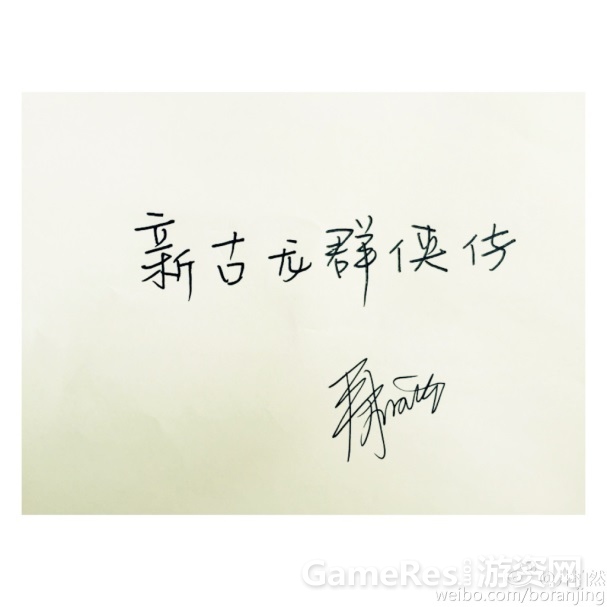 新古龙群侠传
GameRes游资网
weibo.com/boranjing